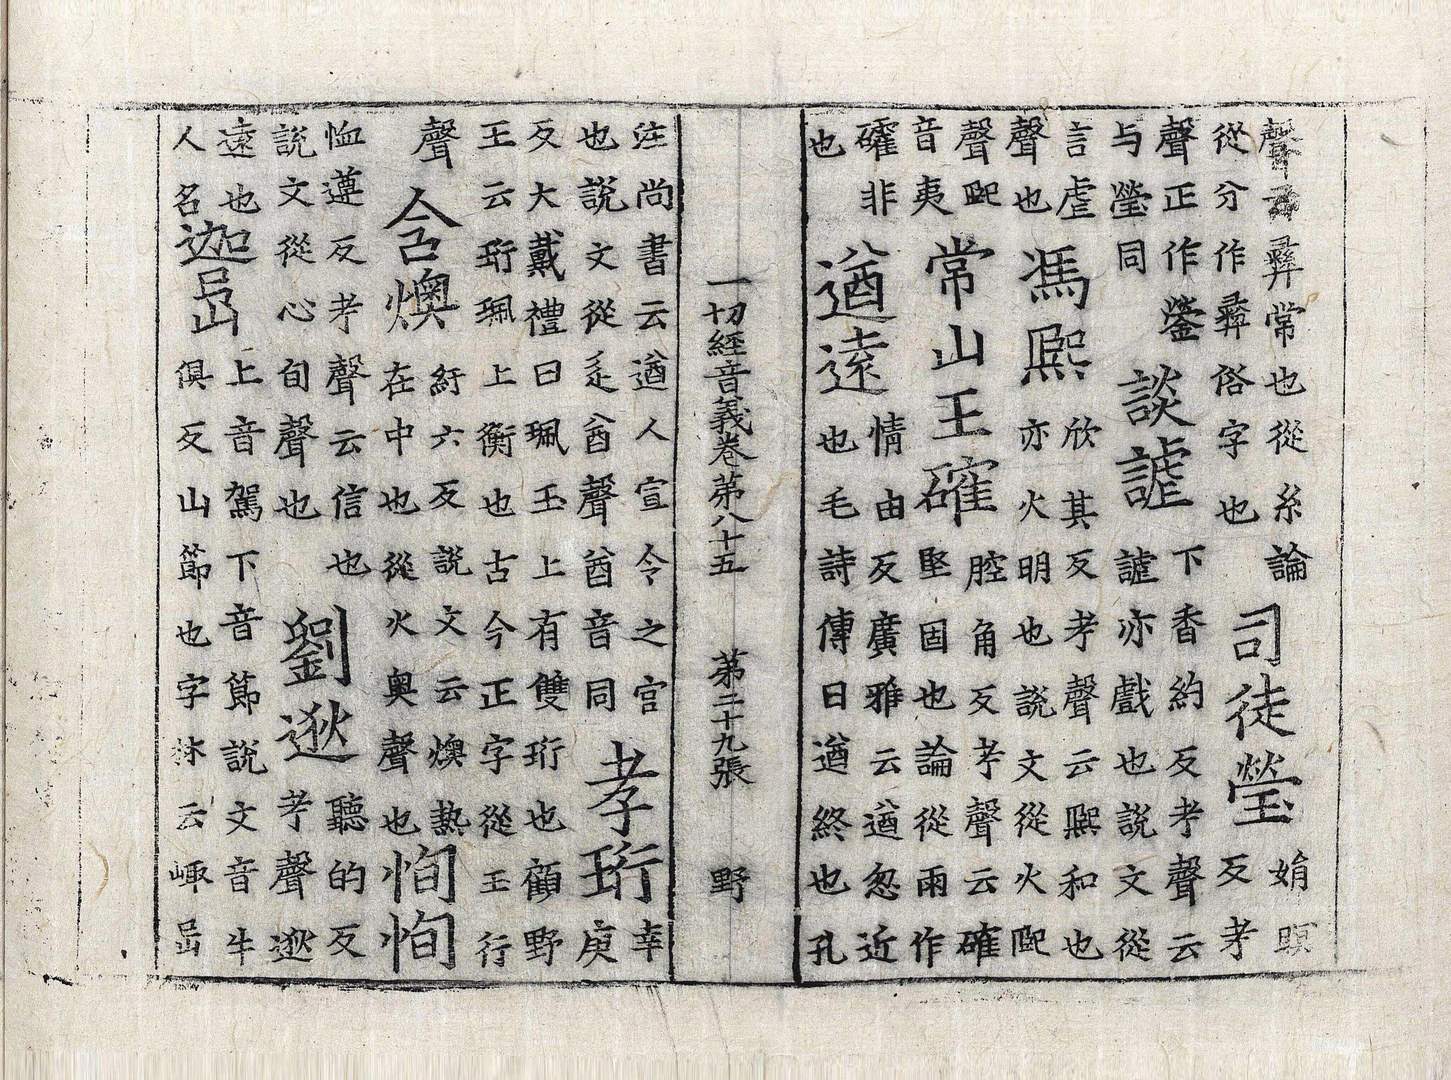 聲云彛常也從糸論
從分作彝俗字也
司徒瑩
反考
聲正作鎣
与瑩同
談謔
下香約反考聲云
謔亦戲也說文從
言虐
聲也
馮熈
欣其反考聲云熈和也
亦火明也說文從火熈
聲熈
音夷
常山王確
腔角反考聲云確
堅固也論從雨作
礭非
也
遒遠
情由反廣雅云遒忽近
也毛詩傳曰遒終也孔
一切經音義卷第八十五 第二十九張 野
注尚書云遒人宣令之官
也說文從辵酋聲酋音同
孝珩
幸
庚
反大戴禮曰珮玉上有雙珩也顧野
王云珩珮上衡也古今正字從王行
聲
含燠
紆六反說文云燠熱
在中也從火奧聲也
恂恂
恤遵反考聲云信也
說文從心旬聲也
劉逖
聽的反
考聲逖
遠也
人名
迦
上音駕下音節說文音牛
俱反山節也字林云嵎